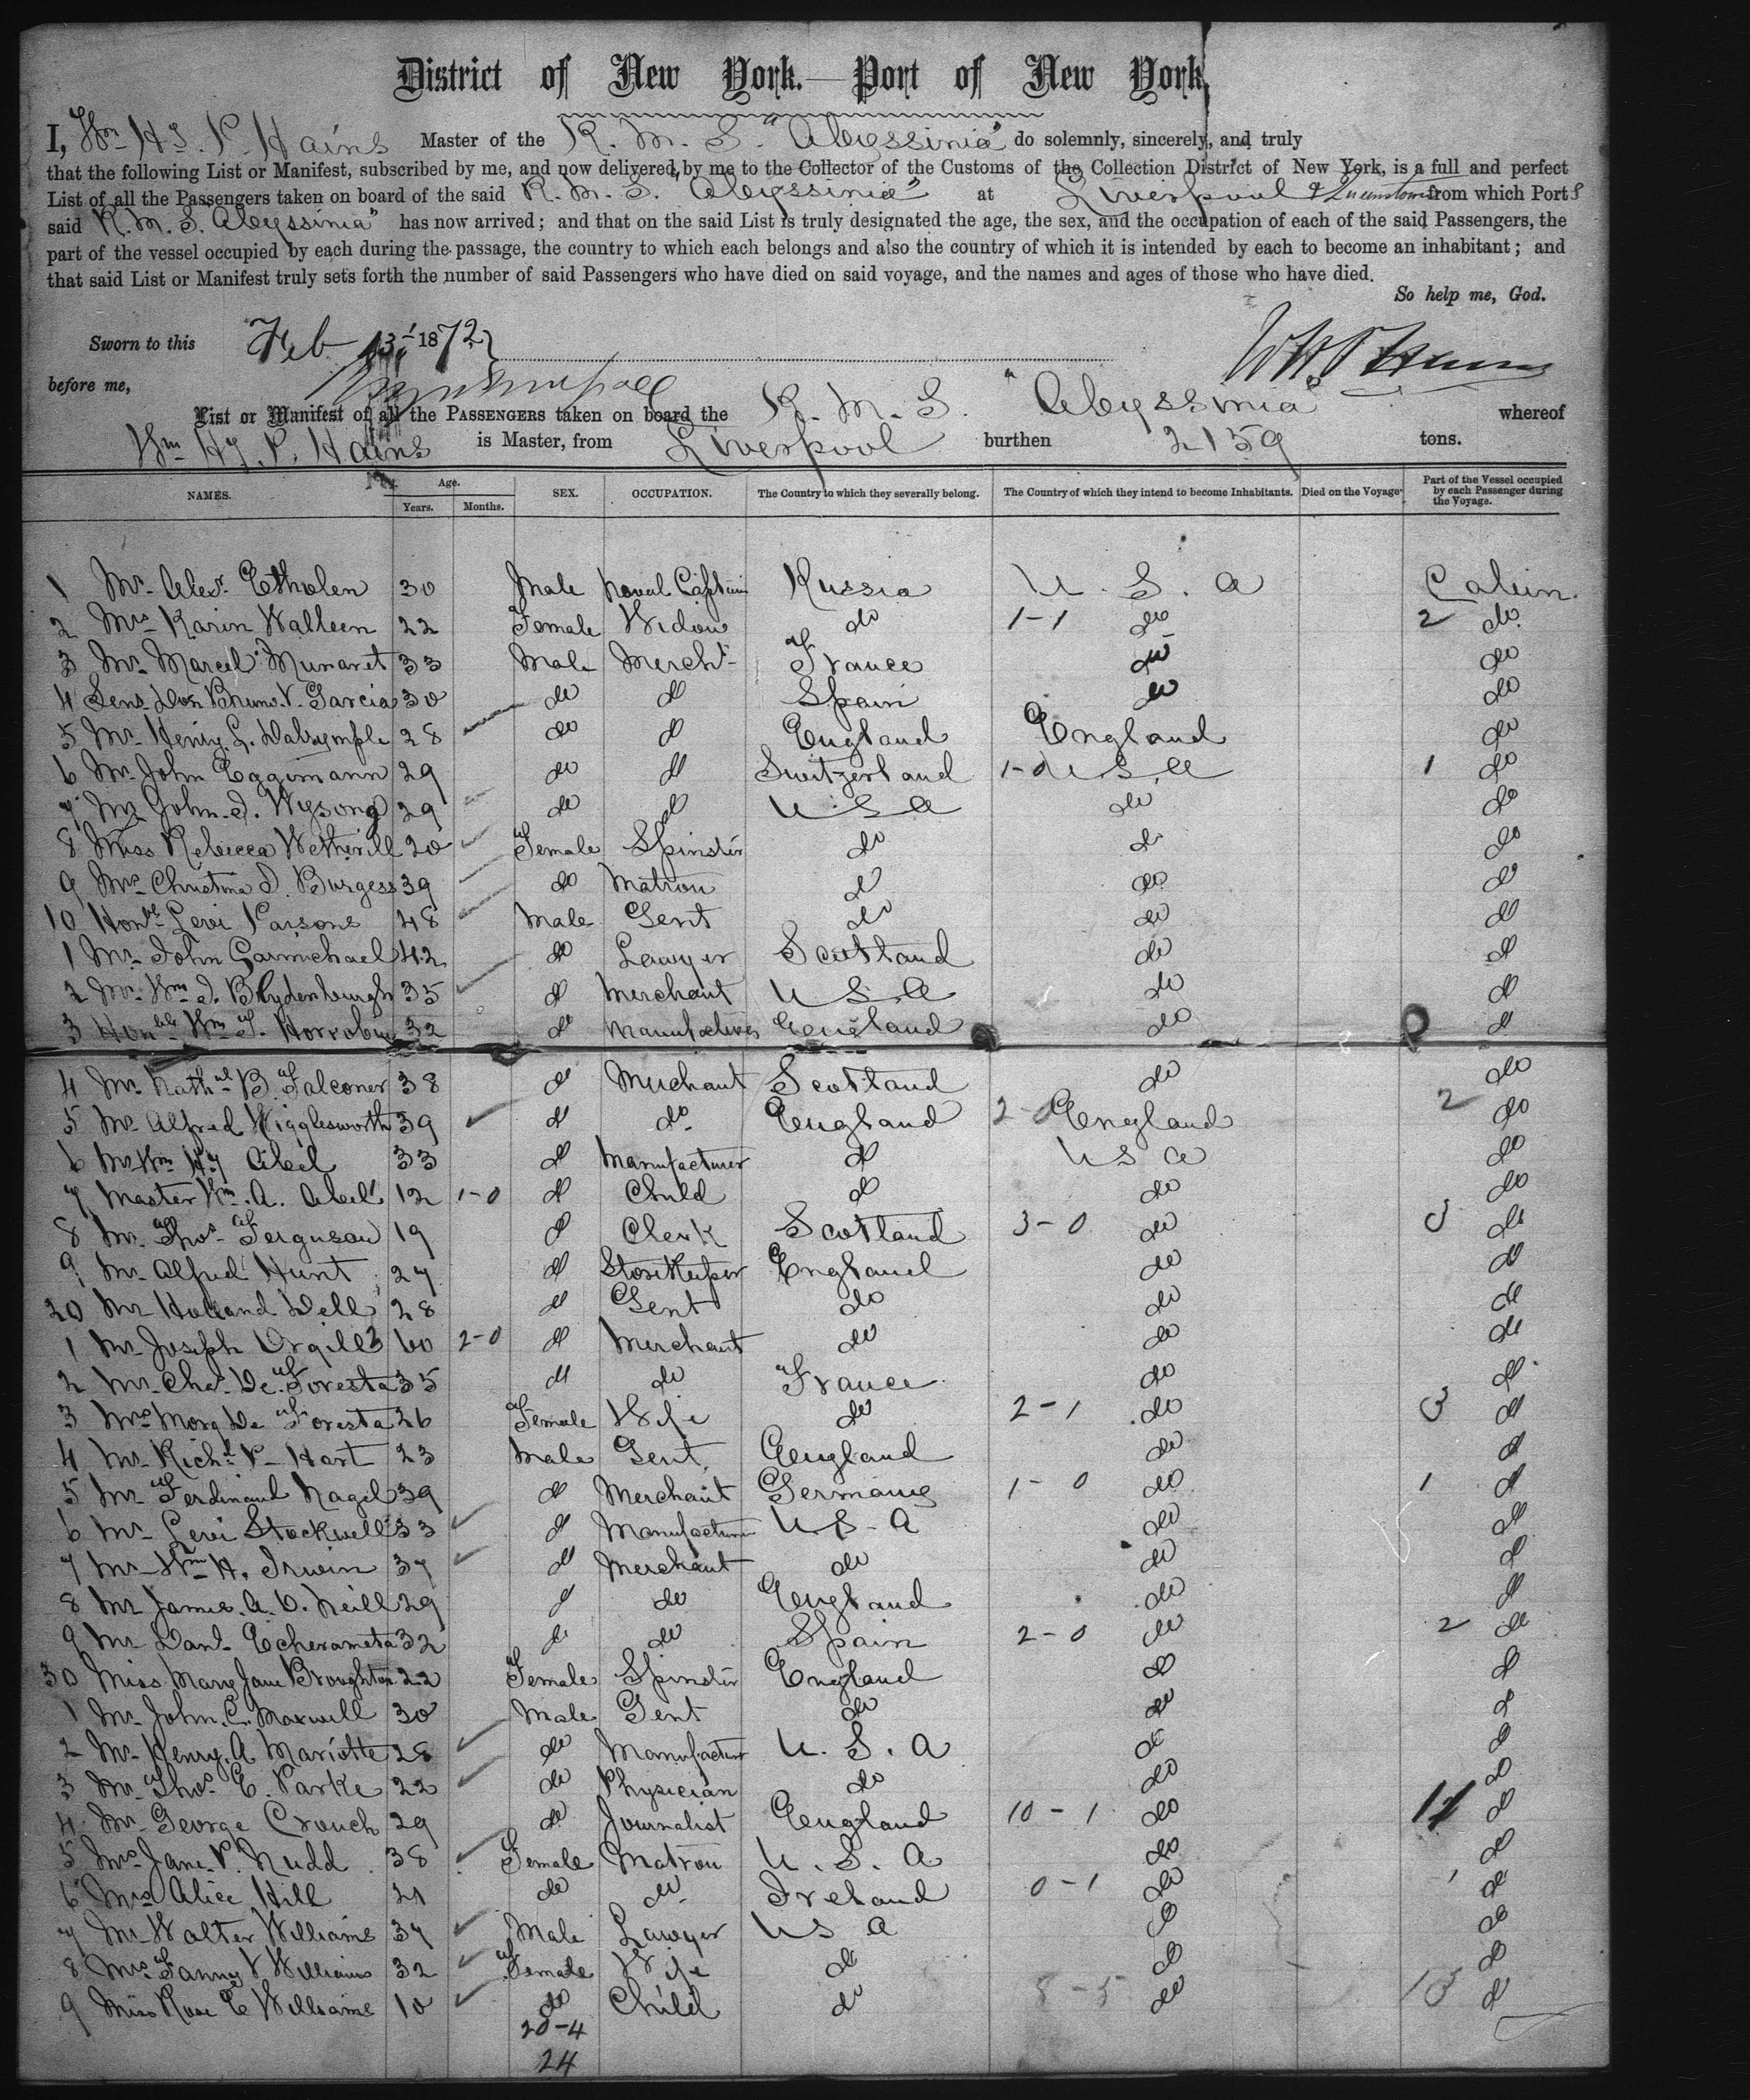 District of New York.—Port of New York
I, Wm Hy. P. Hains Master of the R. M. S. "Abyssinia" do solemnly, sincerely, and truly
that the following List or Manifest, subscribed by me, and now delivered by me to the Collector of the Customs of the Collection District of New York, is a full and perfect
List of all the Passengers taken on board of the said R. M. S. "Abyssinia" at Liverpool & Queenstown from which Port s
said R. M. S. Abyssinia" has now arrived; and that on the said List is truly designated the age, the sex, and the occupation of each of the said Passengers, the
part of the vessel occupied by each during the passage, the country to which each belongs and also the country of which it is intended by each to become an inhabitant; and
that said List or Manifest truly sets forth the number of said Passengers who have died on said voyage, and the names and ages of those who have died.
So help me, God.
Sworn to this Feb 13 1872
before me,
List or Manifest of all the PASSENGERS taken on board the R. M. S. "Abyssinia" whereof
Wm Hy. P. Hains is Master, from Liverpool burthen 2159 tons.
NAMES. Age. Years. Months. SEX. OCCUPATION. The Country to which they severally belong. The Country of which they intend to become Inhabitants. Died on the Voyage. Part of the Vessel occupied by each Passenger during the Voyage.
1 Mr. Alexr. Etholen 30 Male Naval Captain Russia U. S. A Cabin.
2 Mrs Karin Walleen 22 Female Widow do 1-1 do 2 do
3 Mr. Marcel Munaret 33 Male Mercht France do do
4 Senr Don Bruno. V. Garcia 30 do do Spain do do
5 Mr. Henry L. Dalrymple 28 do do England England do
6 Mr John Eggimann 29 do do Switzerland 1-0 U S. A 1 do
7 Mr John. J. Wysong 29 do do U S A do do
8 Miss Rebecca Wetherill 20 Female Spinster do do do
9 Mrs Christina D. Burgess 39 do Matron do do do
10 Honble Levi Parsons 48 Male Gent do do do
1 Mr John Carmichael 42 do Lawyer Scotland do do
2 Mr. Wm J. Brydenburgh 35 do Merchant U S. A do do
3 Honble Wm F. Horrobin 32 do Manufacturer England do do
4 Mr. Nathnl B. Falconer 38 do Merchant Scotland do do
5 Mr Alfred Wigglesworth 39 do do England 2-0 England 2 do
6 Mr Wm Hy Abeil 33 do Manufacturer do U S A do
7 Master Wm. A. Abeil 12 1-0 do Child do do do
8 Mr. Thos. Ferguson 19 do Clerk Scotland 3-0 do 3 do
9 Mr. Alfred Hunt 27 do StoreKeeper England do do
20 Mr Holland Dell 28 do Gent do do do
1 Mr. Joseph Orgill 60 2-0 do Merchant do do do
2 Mr. Chas. De. Foresta 35 do do France do do
3 Mrs Morg De Foresta 26 Female Wife do 2-1 do 3 do
4 Mr. Richd P. Hart 23 Male Gent. England do do
5 Mr Ferdinand Nagel 39 do Merchant Germany 1-0 do 1 do
6 Mr Levi Stockwell 33 do Manufacturer U S. A do do
7 Mr Wm H. Irwin 37 do Merchant do do do
8 Mr James. A. O. Neill 29 do do England do do
9 Mr Danl. Echerameta 32 do do Spain 2-0 do 2 do
30 Miss Mary Jane Broughton 22 Female Spinster England do do
1 Mr. John. C. Maxwell 30 Male Gent do do do
2 Mr. Henry. A Mariotte 28 do Manufacturer U. S. A do do
3 Mr. Thos. E. Parke 22 do Physician do do do
4 Mr. George Crouch 29 do Journalist England 10-1 do 11 do
5 Mrs Jane. P. Nudd 38 Female Matron U. S. A do do
6 Mrs Alice Hill 21 do do Ireland 0-1 do 1 do
7 Mr Walter Williams 37 Male Lawyer U S A do do
8 Mrs Fanny V Williams 32 Female Wife do do do
9 Miss Rose E Williams 10 do Child do 8-5 do 13 do
20-4
24